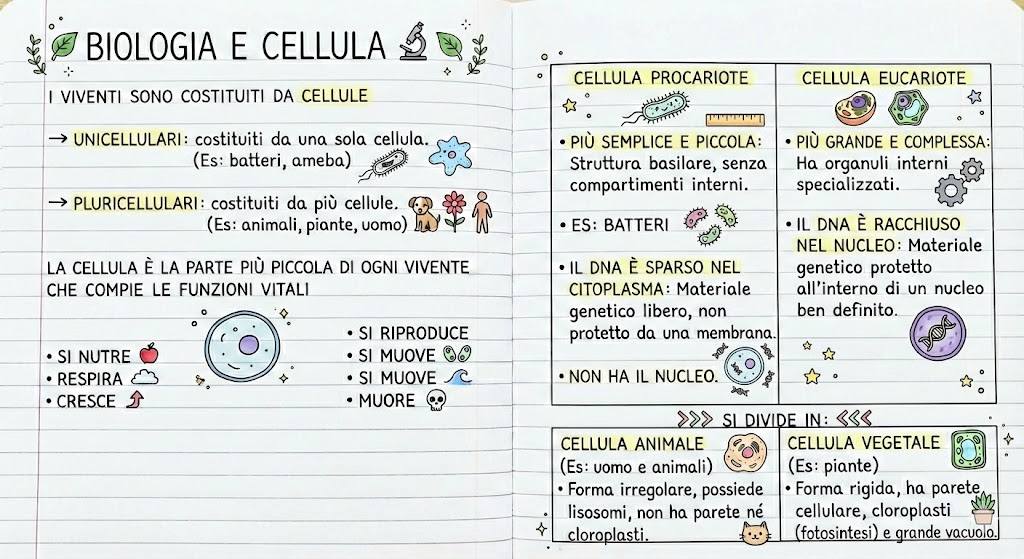 BIOLOGIA E CELLULA
I VIVENTI SONO COSTITUITI DA CELLULE
→ UNICELLULARI: costituiti da una sola cellula.
(Es: batteri, ameba)
→ PLURICELLULARI: costituiti da più cellule.
(Es: animali, piante, uomo)
LA CELLULA È LA PARTE PIÙ PICCOLA DI OGNI VIVENTE
CHE COMPIE LE FUNZIONI VITALI
• SI NUTRE
• RESPIRA
• CRESCE
• SI RIPRODUCE
• SI MUOVE
• SI MUOVE
• MUORE
CELLULA PROCARIOTE
• PIÙ SEMPLICE E PICCOLA:
Struttura basilare, senza
compartimenti interni.
• ES: BATTERI
• IL DNA È SPARSO NEL
CITOPLASMA: Materiale
genetico libero, non
protetto da una membrana.
• NON HA IL NUCLEO.
CELLULA EUCARIOTE
• PIÙ GRANDE E COMPLESSA:
Ha organuli interni
specializzati.
• IL DNA È RACCHIUSO
NEL NUCLEO: Materiale
genetico protetto
all'interno di un nucleo
ben definito.
SI DIVIDE IN:
CELLULA ANIMALE
(Es: uomo e animali)
• Forma irregolare, possiede
lisosomi, non ha parete né
cloroplasti.
CELLULA VEGETALE
(Es: piante)
• Forma rigida, ha parete
cellulare, cloroplasti
(fotosintesi) e grande vacuolo.